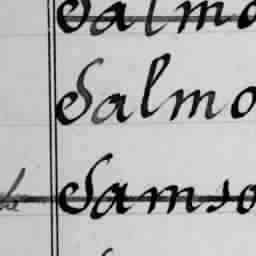 Salmo
Salmo
Samso